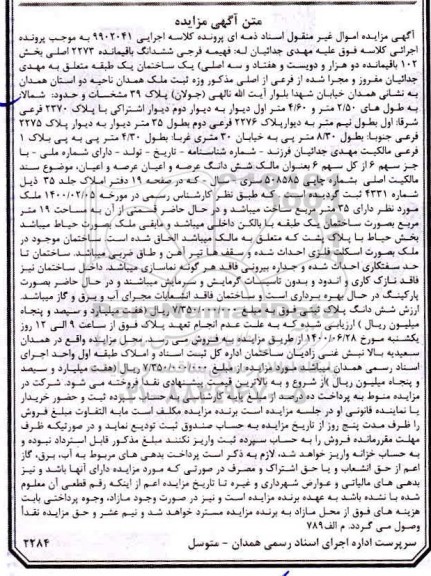 متن آگهی مزایده
آگهی مزایده اموال غیر منقول اسناد ذمه ای پرونده کلاسه اجرایی ۹۹۰۲۰۴۱ به موجب پرونده
اجرائی کلاسه فوق علیه مهدی جدائیان له: فهیمه فرجی ششدانگ باقیمانده ۲۲۷۳ اصلی بخش
۱۰۲ باقیمانده دو هزار و دویست و هفتاد و سه اصلی) یک ساختمان یک طبقه متعلق به مهدی
جدائیان مفروز و مجزا شده از فرعی از اصلی مذکور وزه ثبت ملک همدان ناحیه دو استان همدان
به نشانی همدان خیابان شهدا بلوار آیت الله تالهی (جولان) پلاک ۳۹ مشخصات و حدود: شمالا
به طول های ۲/۵۰ متر و ۴/۶۰ متر اول دیوار به دیوار دوم دیوار اشتراکی با پلاک ۲۲۷۰ فرعی
شرقا: اول بطول نیم متر به دیوارپلاک ۲۲۷۶ فرعی دوم بطول ۳۵ متر دیوار به دیوار پلاک ۲۲۷۵
فرعی جنوبا: بطول ۸/۳۰ متر پی به خیابان ۳۰ متری غربا: بطول ۴/۳۰ متر پی به پی پلاک ۱
فرعی مالکیت مهدی جدائیان فرزند - شماره شناسنامه - تاریخ - تولد - دارای شماره ملی - با
جز سهم ۶ از کل سهم ۶ بعنوان مالک شش دانگ عرصه و اعیان عرصه و اعیان، موضوع سند
مالکیت اصلی بشماره چاپی ۵۰۸۵۸۵ سری که در صفحه ۱۹ دفتر املاک جلد ۳۵ ذیل
شماره ۴۳۳۱ ثبت گردیده است. که طبق نظر کارشناس رسمی در مورخه ۱۴۰۰/۰۲/۰۵ ملک
مورد نظر دارای ۳۵ متر مربع ساخت میباشد و در حال حاضر قسمتی از آن با مساحت ۱۹ متر
مربع بصورت ساختمان یک طبقه با بالکن داخلی میباشد و مابقی ملک بصورت حیاط میباشد
بخش حیاط با پلاک پشت که متعلق به مالک میباشد الحاق شده است. ساختمان موجود در
ملک بصورت اسکلت فلزی احداث شده و سقف ها تیر آهن و طاق ضربی میباشد. ساختمان تا
حد سفتکاری احداث شده و جداره بیرونی فاقد هر گونه نماسازی میباشد. داخل ساختمان نیز
فاقد نازک کاری و اندود و بدون تاسیسات گرمایش و سرمایش میباشند و در حال حاضر بصورت
پارکینگ در حال بهره برداری است و ساختمان فاقد انشعابات مجرای آب و برق و گاز میباشد.
ارزش شش دانگ پلاک ثبتی فوق به مبلغ ۷/۳۵۰/۰۰۰/۰۰۰ ریال (هفت میلیارد و سیصد و پنجاه
میلیون ریال ) ارزیابی شده که به علت عدم انجام تعهد پلاک فوق از ساعت ۹ الی ۱۲ روز
یکشنبه مورخ ۱۴۰۰/۰۶/۲۸ از طریق مزایده به فروش می رسد. محل مزایده واقع در همدان
سعیدیه بالا نبش غنی زادیان ساختمان اداره کل ثبت اسناد و املاک طبقه اول واحد اجرای
اسناد رسمی همدان میباشد مورد مزایده از مبلغ ۷/۳۵۰/۰۰۰/۰۰۰ ریال (هفت میلیارد و سیصد
و پنجاه میلیون ریال )از شروع و به بالاترین قیمت پیشنهادی نقدا فروخته می شود. شرکت در
مزایده منوط به پرداخت ده درصد از مبلغ پایه کارشناسی به حساب سپرده ثبت و حضور خریدار
یا نماینده قانونی او در جلسه مزایده است برنده مزایده مکلف است مابه التفاوت مبلغ فروش
را ظرف مدت پنج روز از تاریخ مزایده به حساب صندوق ثبت تودیع نماید و در صورتیکه ظرف
مهلت مقررمانده فروش را به حساب سپرده ثبت واریز نکنند مبلغ مذکور قابل استرداد نبوده و
به حساب خزانه واریز خواهد شد، لازم به ذکر است پرداخت بدهی های مربوط به آب، برق، گاز
اعم از حق انشعاب و یا حق اشتراک و مصرف در صورتی که مورد مزایده دارای آنها باشد و نیز
بدهی های مالیاتی و عوارض شهرداری و غیره تا تاریخ مزایده اعم از اینکه رقم قطعی آن معلوم
شده یا نشده باشد به عهده برنده مزایده است و نیز در صورت وجود مازاد، وجوه پرداختی بابت
هزینه های فوق از محل مازاد به برنده مزایده مسترد خواهد شد و نیم عشر و حق مزایده نقداً
وصول می گردد. م الف۷۸۹
سرپرست اداره اجرای اسناد رسمی همدان - متوسل ۲۲۸۴